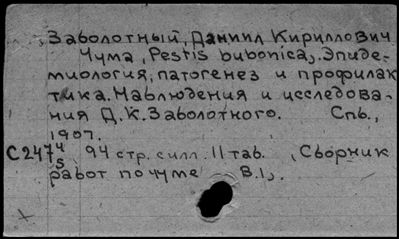 Заболотный, Даниил Кириллович
Чума, Pestis bubonica,. Эпиде-
миология, патогенез и профилак
тика. Наблюдения и исследова-
ния Д.К. Заболотного. Спб.,
1907.
С 247 4/5 94 стр. силл. 11 таб. , Сборник
работ по чуме В.1,.